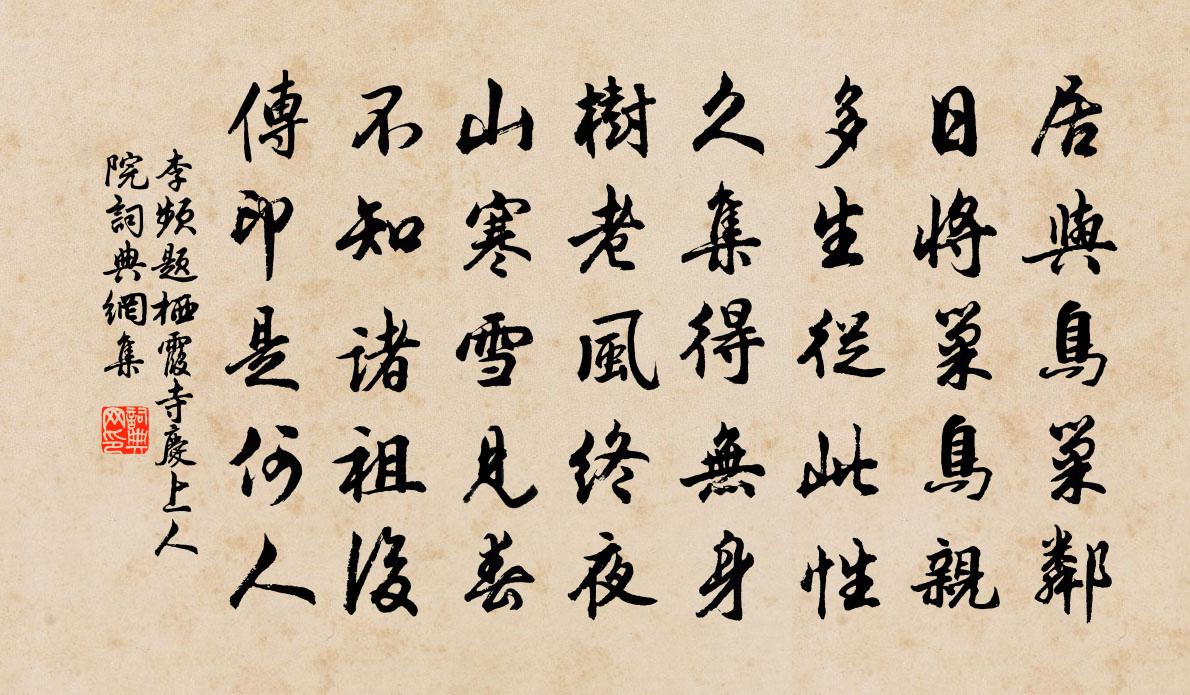 居與鳥巢鄰
日將巢鳥親
多生從此性
久集得無身
樹老風終夜
山寒雪見春
不知諸祖後
傳印是何人
李頻題栖霞寺慶上人
院詞典網集
詞典
网印